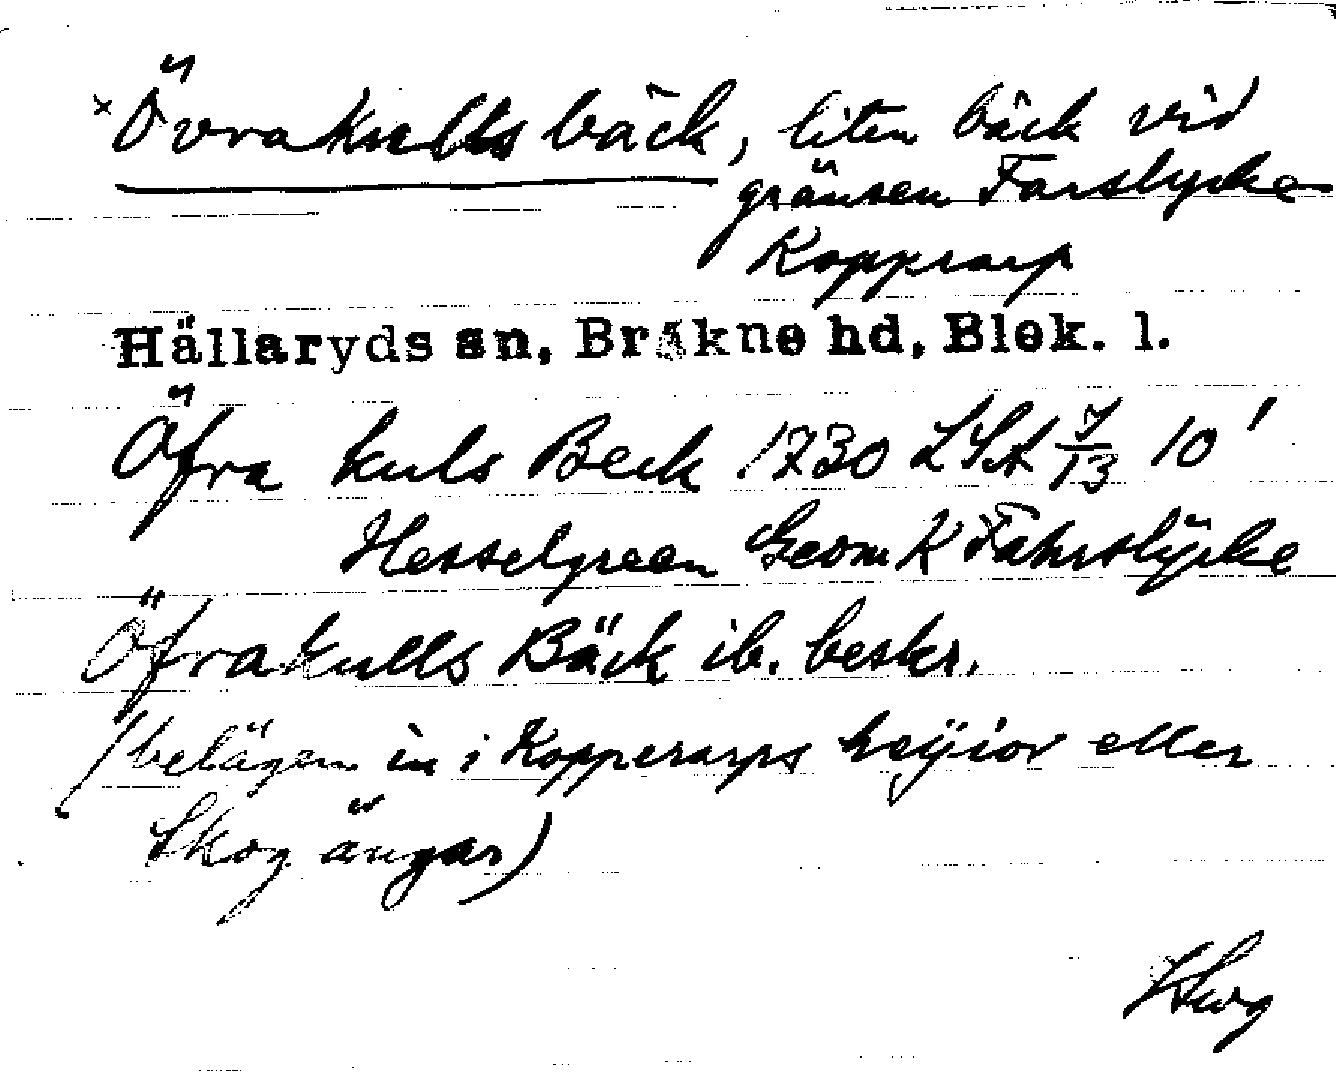 ×Övrakullsbäck, liten bäck vid
gränsen Farslycke
Kopprarp
Hällaryds sn, Bräkne hd, Blek. l.
Öfra kuls Beck 1730 LSA 7/13 10'
Hesselgreen Geom K Fahrslÿcke
Öfrakulls Bäck ib. beskr.
(belägen in i Kopperarps heÿior eller
Skog ängar)